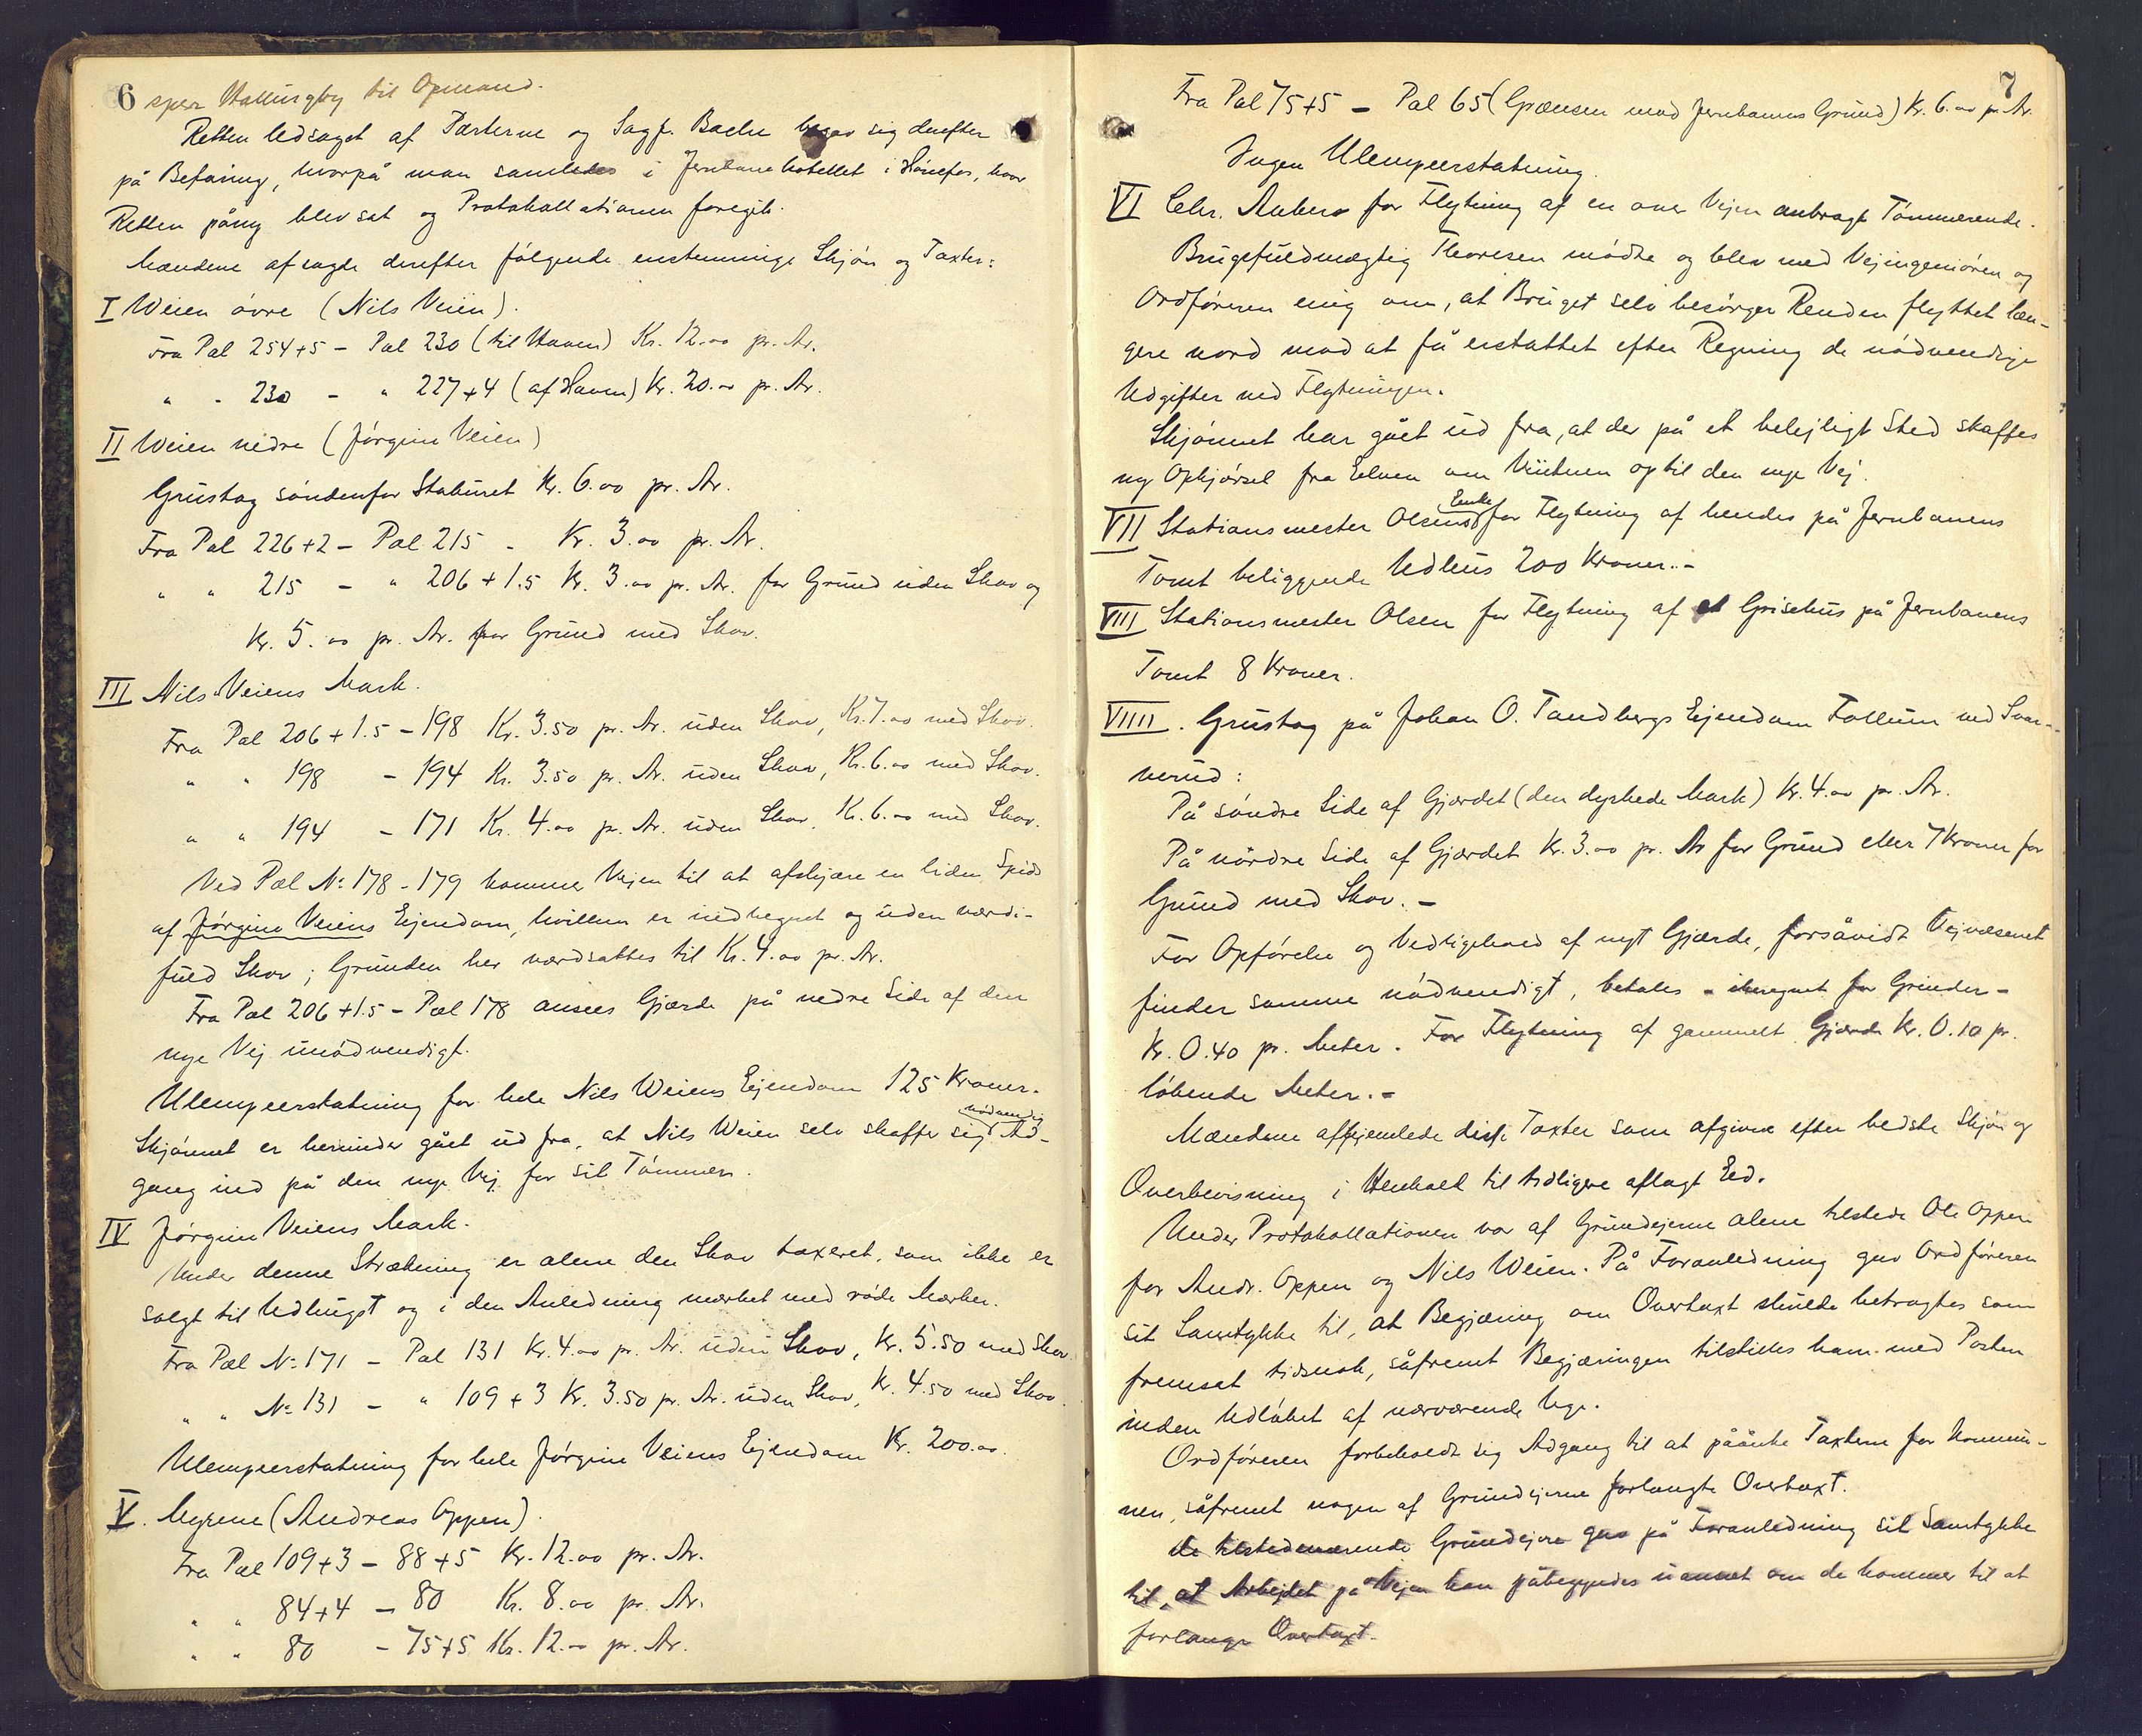 6
sper Hallingby til Opmand.
Retten ledsaget af Parterne og Sagf. Bache begav sig derefter
på Befaring, hvorpå man samledes i Jernbanehotellet i Hönefos, hvor
Retten påny blev sat og Protokollationen foregik.
Mændene afsagde derefter fölgende enstemmige Skjön og Taxter:
I Weien övre (Nils Veien).
Fra Pæl 254+5 – Pæl 230 (til Haven) Kr. 12.00 pr. Ar.
" " 230 – " 227+4 (af Haven) Kr. 20.00 pr. Ar.
II Weien nedre (Jörgine Veien)
Grustag söndenfor Staburet Kr. 6.00 pr. Ar.
Fra Pæl 226+2 – Pæl 215 – Kr. 3.00 pr. Ar.
" " 215 – " 206+1.5 Kr. 3.00 pr. Ar. for Grund uden Skov og
Kr. 5.00 pr. Ar. for Grund med Skov.
III Nils Veiens Mark.
Fra Pæl 206+1.5 – 198 Kr. 3.50 pr. Ar. uden Skov, Kr. 7.00 med Skov.
" " 198 – 194 Kr. 3.50 pr. Ar. uden Skov, Kr. 6.00 med Skov.
" " 194 – 171 Kr. 4.00 pr. Ar. uden Skov, Kr. 6.00 med Skov.
Ved Pæl No 178 – 179 kommer Vejen til at afskjære en liden Spids
af Jörgine Veiens Ejendom, hvilken er indhegnet og uden værdi-
fuld Skov; Grunden her værdsattes til Kr. 4.00 pr. Ar.
Fra Pæl 206+1.5 – Pæl 178 ansees Gjærde på nedre Side af den
nye Vej unödvendigt.
Ulempeerstatning for hele Nils Weiens Ejendom 125 Kroner.
Skjönnet er herunder gået ud fra, at Nils Weien selv skaffer sig nödvendig Ad-
gang ind på den nye Vej for sit Tömmer.
IV Jörgine Veiens Mark.
Under denne Strækning er alene den Skov taxeret, som ikke er
solgt til Udhugst og i den Anledning mærket med röde Mærker.
Fra Pæl No 171 – Pæl 131 Kr. 4.00 pr. Ar. uden Skov, Kr. 5.50 med Skov.
" " No 131 – " 109+3 Kr. 3.50 pr. Ar. uden Skov, Kr. 4.50 med Skov.
Ulempeerstatning for hele Jörgine Veiens Ejendom Kr. 200.00.
V. Myrene (Andreas Oppen).
Fra Pæl 109+3 – 88+5 Kr. 12.00 pr. Ar.
" " 84+4 – 80 Kr. 8.00 pr. Ar.
" " 80 – 75+5 Kr. 12.00 pr. Ar.
7
Fra Pæl 75+5 – Pæl 65 (Grænsen mod Jernbanens Grund) Kr. 6.00 pr. Ar.
Ingen Ulempeerstatning.
VI Chr. Ankers for Flytning af en over Vejen anbragt Tömmerrende.
Brugsfuldmægtig Thoresen mödte og blev med Vejingeniören og
Ordföreren enig om, at Bruget selv besörger Renden flyttet læn-
gere nord mod at få erstattet efter Regning de nödvendige
Udgifter ved Flytningen.
Skjönnet har gået ud fra, at der på et belejligt Sted skaffes
ny Opkjörsel fra Elven om Vinteren op til den nye Vej.
VII Stationsmester Olsens Enke for Flytning af hendes på Jernbanens
Tomt beliggende Udhus 200 Kroner. –
VIII Stationsmester Olsen for Flytning af et Grisehus på Jernbanens
Tomt 8 Kroner.
VIIII. Grustag på Johan O. Tandbergs Ejendom Follum ved Svar-
verud:
På söndre Side af Gjærdet (den dyrkede Mark) Kr. 4.00 pr. Ar.
På nördre Side af Gjærdet Kr. 3.00 pr. Ar for Grund eller 7 Kroner for
Grund med Skov. –
For Opförelse og Vedligehold af nyt Gjærde, forsåvidt Vejvæsenet
finder samme nödvendigt, betales – iberegnet for Grinder –
Kr. 0.40 pr. Meter. For Flytning af gammelt Gjærde Kr. 0.10 pr.
löbende Meter. –
Mændene afhjemlede disse Taxter som afgivne efter bedste Skjön og
Overbevisning i Henhold til tidligere aflagt Eed.
Under Protokollationen var af Grundejerne alene tilstede Ole Oppen
for Andr. Oppen og Nils Weien. På Foranledning gav Ordföreren
sit Samtykke til, at Begjæring om Overtaxt skulde betragtes som
fremsat tidsnok, såfremt Begjæringen tilstilles ham med Posten
inden Udlöbet af nærværende Uge.
Ordföreren forbeholdt sig Adgang til at påanke Taxterne for Kommu-
nen, såfremt nogen af Grundejerne forlangte Overtaxt.
De tilstedeværende Grundejere gav på Foranledning sit Samtykke
til, at Arbejdet på Vejen kan påbegyndes uanset om de kommer til at
forlange Overtaxt.